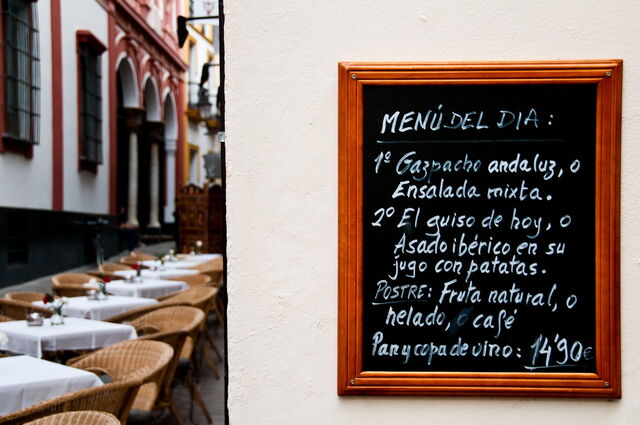 MENÚ DEL DIA:
1º Gazpacho andaluz, o
Ensalada mixta.
2º El guiso de hoy, o
Asado ibérico en su
jugo con patatas.
POSTRE: Fruta natural, o
helado, o café
Pan y copa de vino: 14'90€